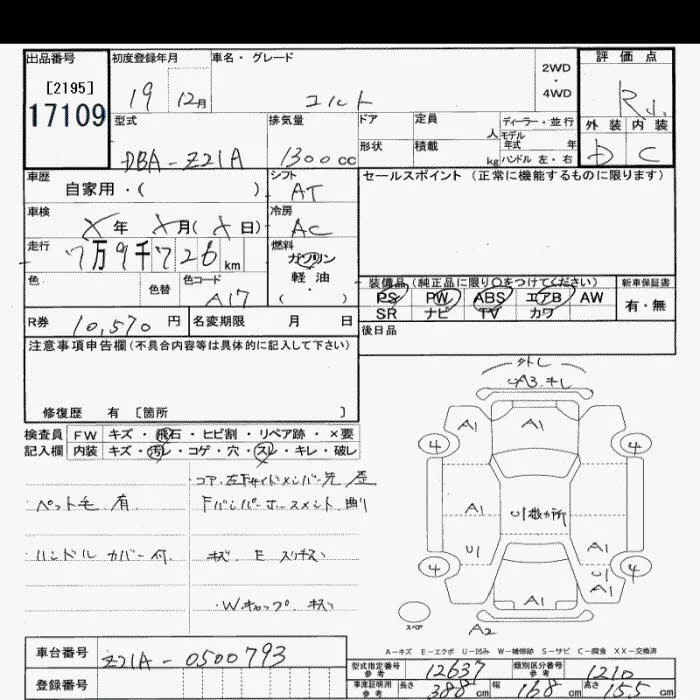 出品番号
[2195]
17109
初度登録年月
19 12月
車名・グレード
コルト
2WD
・
4WD
評価点
R
外装 内装
D C
型式
DBA-Z21A
排気量
1300cc
ドア
定員
人
ディーラー・並行
モデル年式 年
形状
積載
kg
ハンドル 左・右
車歴
自家用・( )
シフト
AT
セールスポイント (正常に機能するものに限ります)
車検
X年 X月(X日)
冷房
AC
走行
7万9千726km
燃料
ガソリン
軽油
( )
色
色替
色コード
A17
装備品 (純正品に限り○をつけてください)
PS PW ABS エアB AW
SR ナビ TV カワ
新車保証書
有・無
R券 10,570円
名変期限 月 日
後日品
注意事項申告欄(不具合内容等は具体的に記入して下さい)
修復歴 有 [箇所 ]
検査員
記入欄
FW キズ・飛石・ヒビ割・リペア跡・×要
内装 キズ・汚レ・コゲ・穴・スレ・キレ・破レ
コア、左Fサイドメンバー先 歪
ペット毛 有
Fバンパーホースメント 曲り
ハンドルカバー付
キズ E スリキズ
Wキャップ キズ
外し
A3. キレ
A1
A1
4
4
A1
U1数カ所
A1
U1
A1
U1
A1
4
4
A1
スペア
A2
A-キズ E-エクボ U-凹み W-補修跡 S-サビ C-腐食 XX-交換済
車台番号
Z21A-0500793
登録番号
型式指定番号
参考
12637
類別区分番号
参考
1210
車庫証明用
参考
長さ 388cm
幅 168cm
高さ 155cm